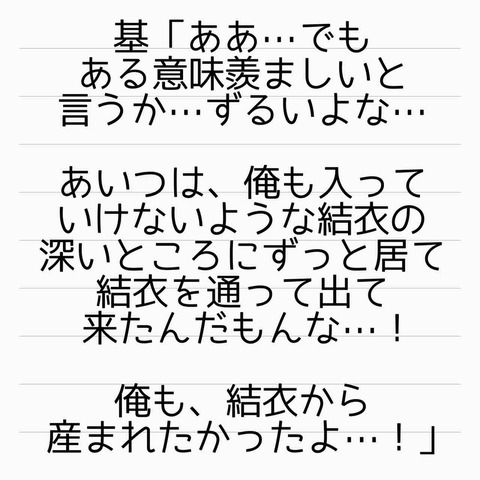 基「ああ…でも
ある意味羨ましいと
言うか…ずるいよな…
あいつは、俺も入って
いけないような結衣の
深いところにずっと居て
結衣を通って出て
来たんだもんな…！
俺も、結衣から
産まれたかったよ…！」